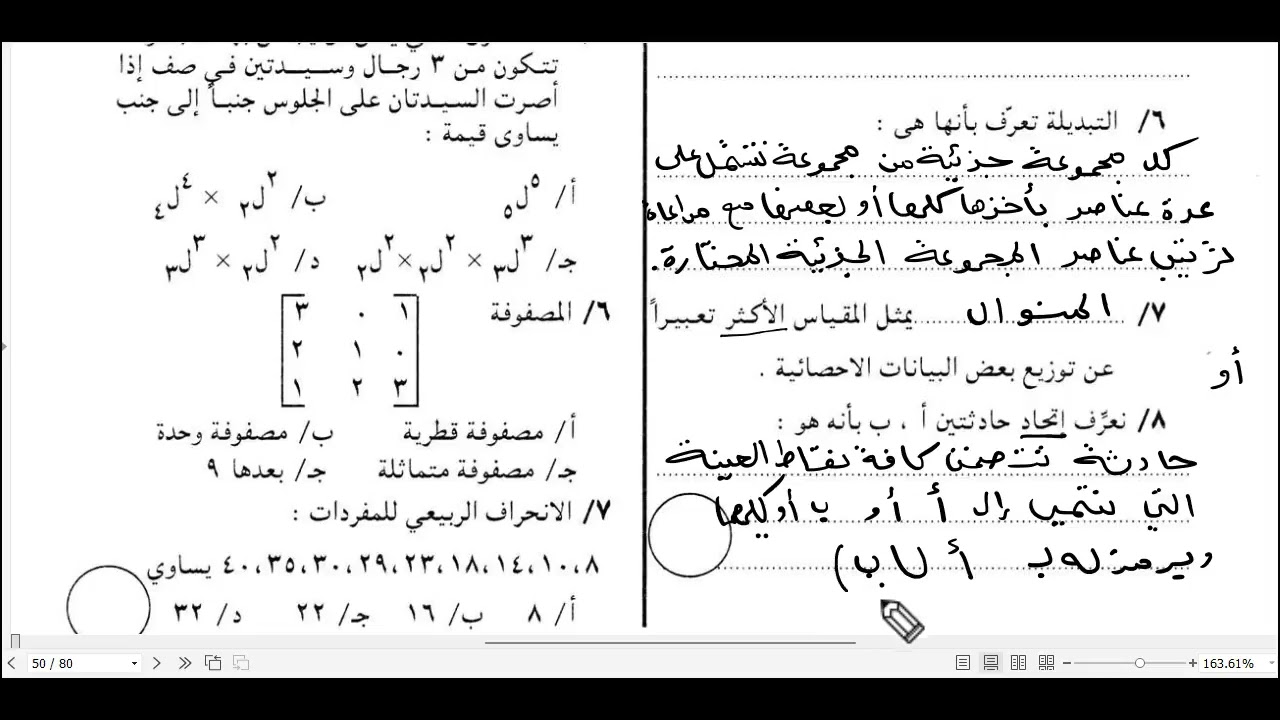 ٦/ التبديلة تعرّف بأنها هى :
كل مجموعة جزئية من مجموعة تشتمل على
عدة عناصر بأخذها كلها أو بعضها مع مراعاة
ترتيب عناصر المجموعة الجزئية المختارة.
٧/ المنوال يمثل المقياس الأكثر تعبيراً
أو
عن توزيع بعض البيانات الاحصائية .
٨/ نعرِّف إتحاد حادثتين أ ، ب بأنه هو :
حادثة تتضمن كافة نقاط العينة
التي تنتمي إلى أ أو ب أو كليهما
ويرمز له بـ أ ل ب)
تتكون من ٣ رجال وسيدتين في صف إذا
أصرت السيدتان على الجلوس جنباً إلى جنب
يساوى قيمة :
أ/ ٥ل٥ ب/ ٢ل٢ × ٤ل٤
جـ/ ٣ل٣ × ٢ل٢ × ٢ل٢ د/ ٢ل٢ × ٣ل٣
٦/ المصفوفة
١ ٠ ٣
٠ ١ ٢
٣ ٢ ١
أ/ مصفوفة قطرية ب/ مصفوفة وحدة
جـ/ مصفوفة متماثلة جـ/ بعدها ٩
٧/ الانحراف الربيعي للمفردات :
٨،١٠،١٤،١٨،٢٣،٢٩،٣٠،٣٥،٤٠ يساوي
أ/ ٨ ب/ ١٦ جـ/ ٢٢ د/ ٣٢
50 / 80
163.61%